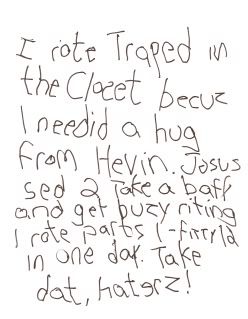 I rote Traped in
the Clozet becuz
I needid a hug
from Hevin. Jesus
sed 2 take a baff
and get buzy riting
I rote parts 1-
in one day. Take
dat, haterz!